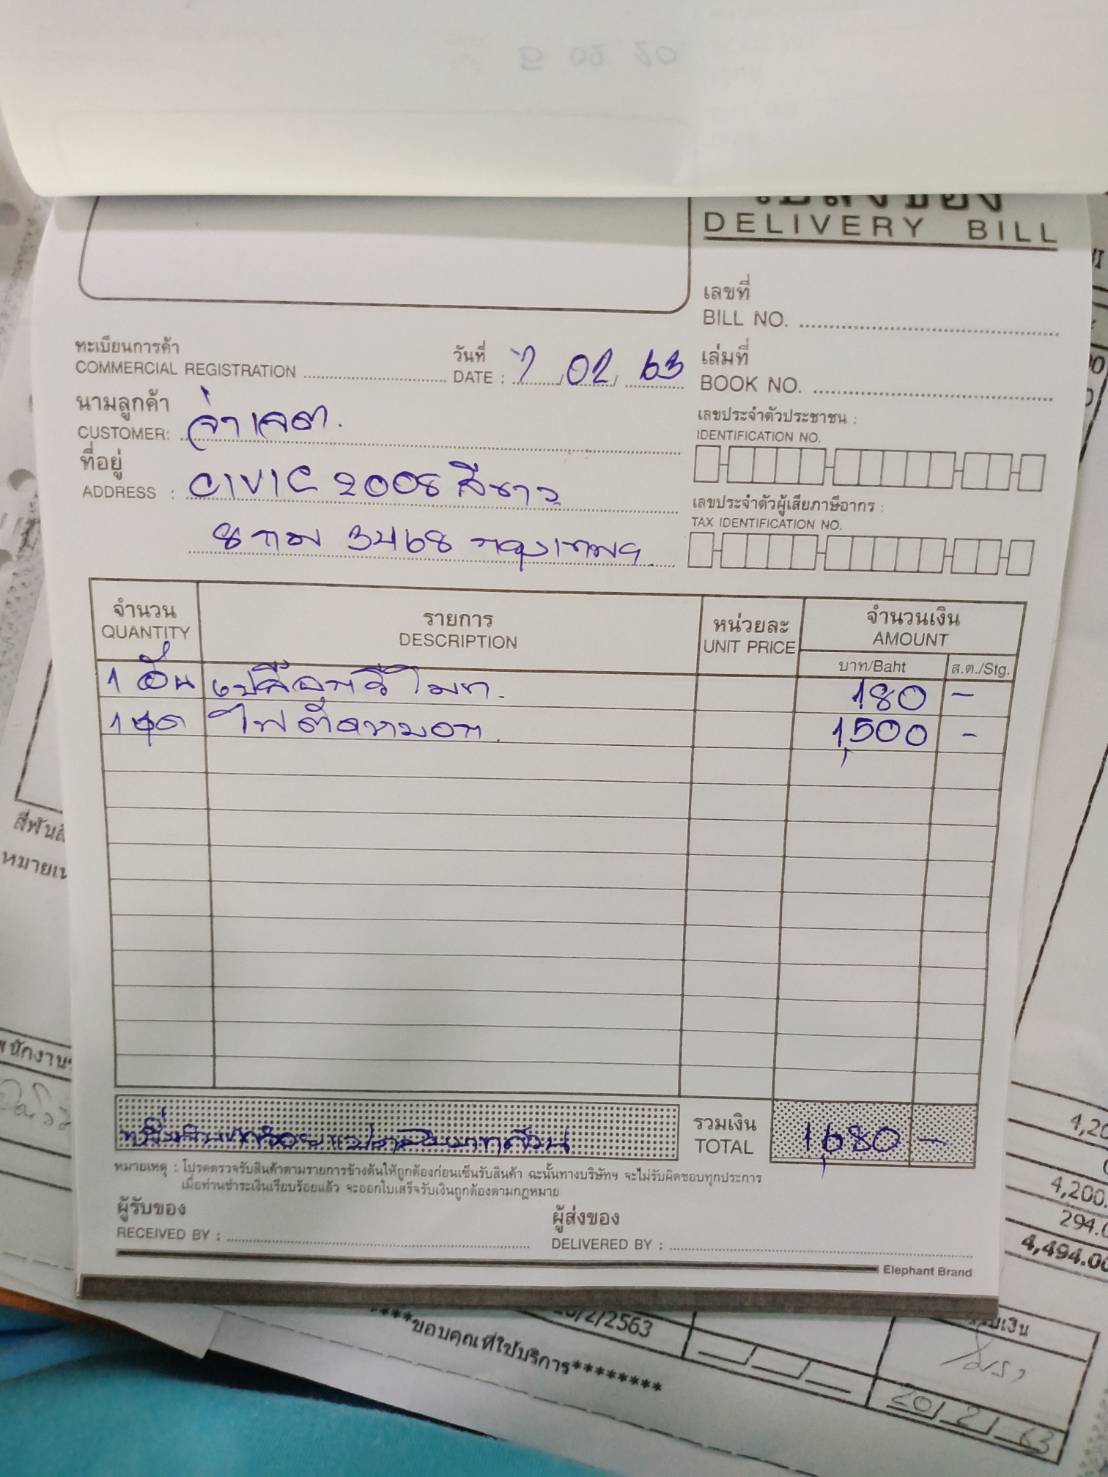 DELIVERY BILL
เลขที่
BILL NO.
ทะเบียนการค้า
COMMERCIAL REGISTRATION
วันที่
DATE : 7 / 02 / 63
เล่มที่
BOOK NO.
นามลูกค้า
CUSTOMER: จ่าเจต.
เลขประจำตัวประชาชน :
IDENTIFICATION NO.
ที่อยู่
ADDRESS : CIVIC 2008 สีขาว
เลขประจำตัวผู้เสียภาษีอากร :
TAX IDENTIFICATION NO.
3468 กรุงเทพฯ
จำนวน
QUANTITY
รายการ
DESCRIPTION
หน่วยละ
UNIT PRICE
จำนวนเงิน
AMOUNT
บาท/Baht
ส.ต./Stg.
1 อัน เปลือกรีโมท. 180 -
1 ชุด ไฟตัดหมอก. 1,500 -
หนึ่งพันหกร้อยแปดสิบบาทถ้วน
รวมเงิน
TOTAL
1,680 -
หมายเหตุ : โปรดตรวจรับสินค้าตามรายการข้างต้นให้ถูกต้องก่อนเซ็นรับสินค้า ฉะนั้นทางบริษัทฯ จะไม่รับผิดชอบทุกประการ
เมื่อท่านชำระเงินเรียบร้อยแล้ว จะออกใบเสร็จรับเงินถูกต้องตามกฎหมาย
ผู้รับของ
RECEIVED BY :
ผู้ส่งของ
DELIVERED BY :
Elephant Brand
4,200.
294.0
4,494.00
/2/2563
****ขอบคุณที่ใช้บริการ********
20/2/63